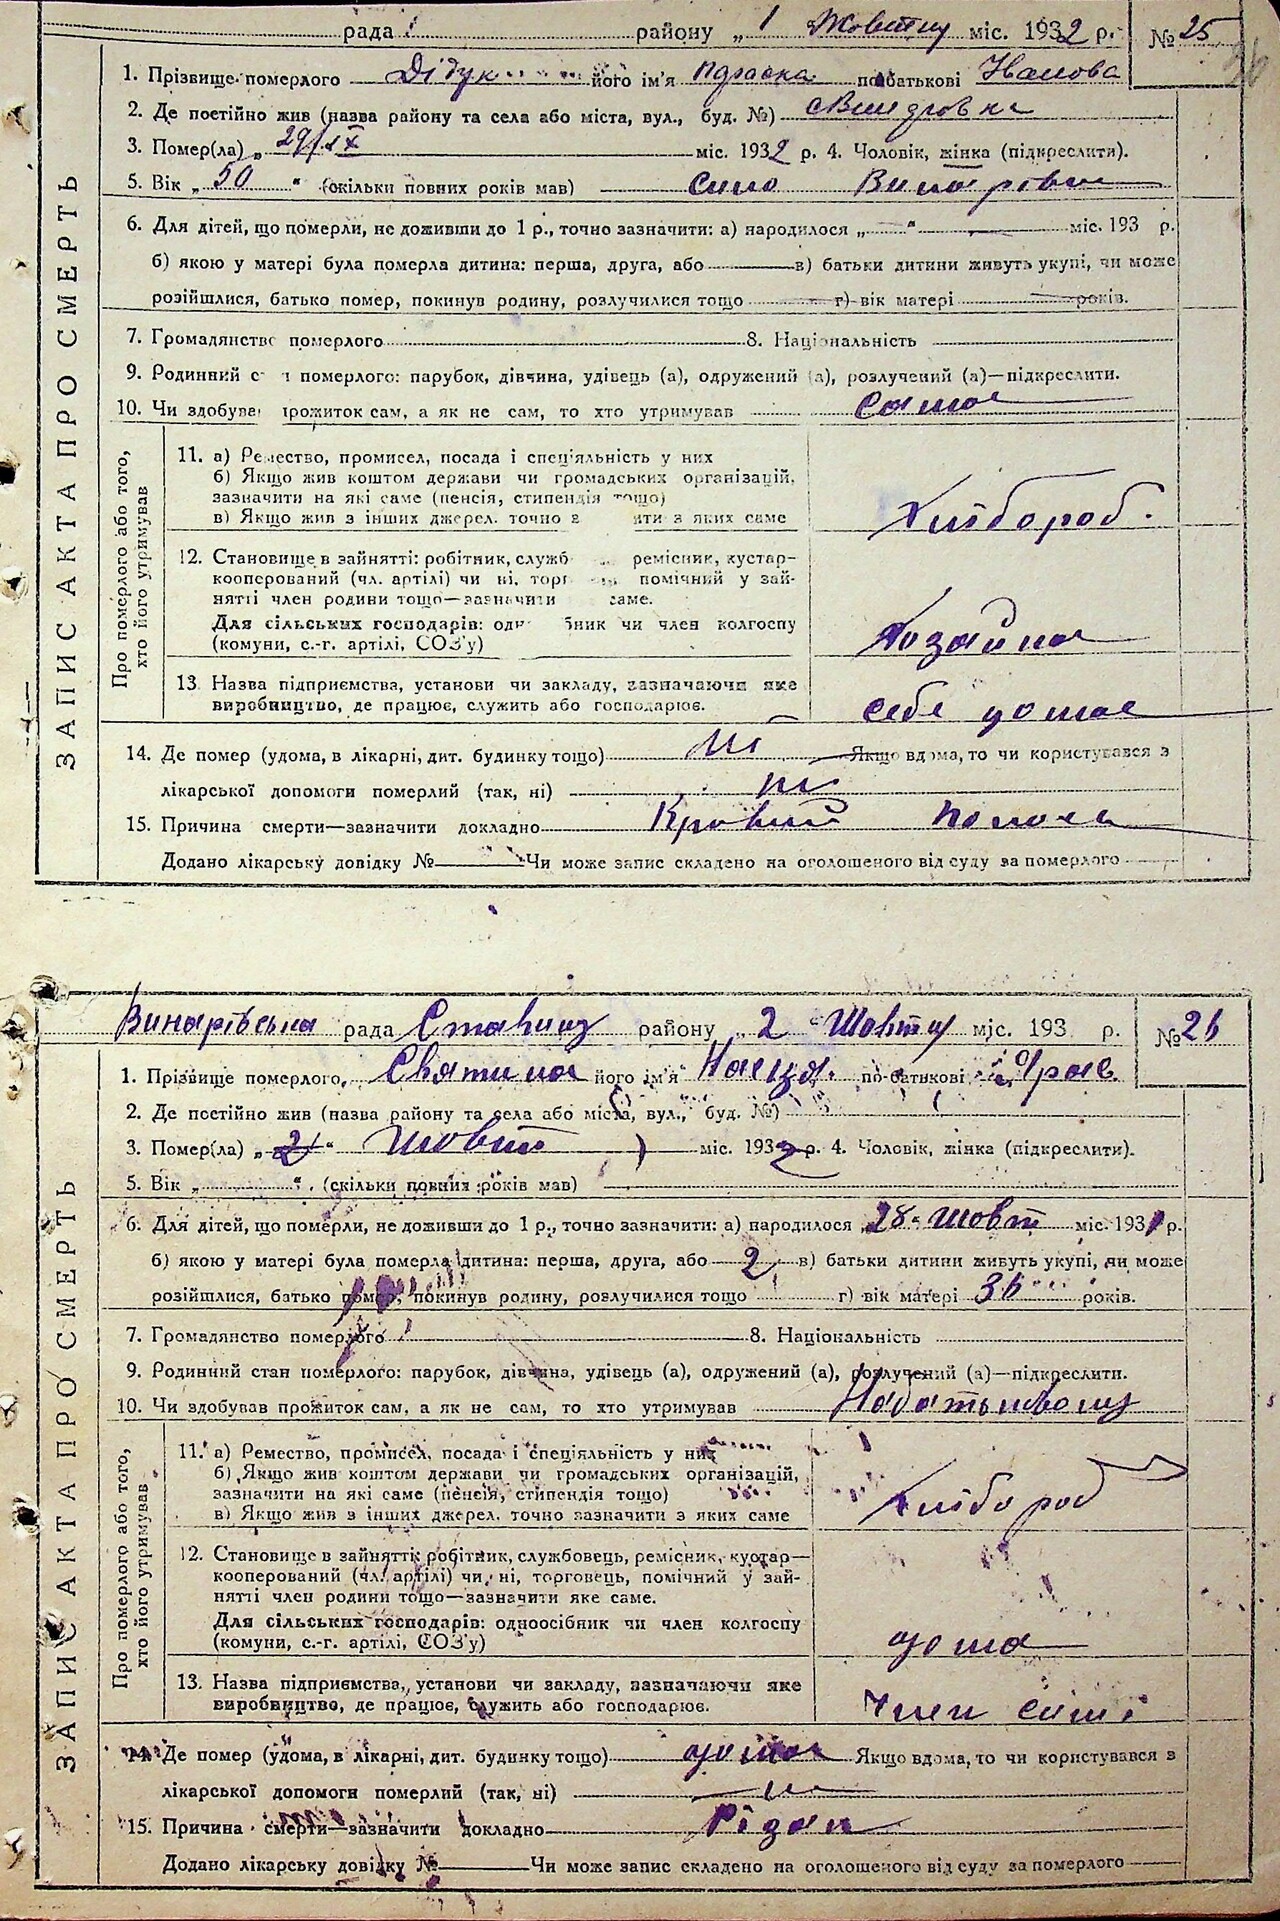 рада району „ 1 Жовтну міс. 1932 р. № 25
1. Прізвище померлого Дідук його ім'я Параска по батькові Іванова
2. Де постійно жив (назва району та села або міста, вул., буд. №)
3. Помер(ла) „ 29/IX міс. 1932 р. 4. Чоловік, жінка (підкреслити).
5. Вік „ 50 “ (скільки повних років мав) село Винарівка
6. Для дітей, що померли, не доживши до 1 р., точно зазначити: а) народилося „ “ міс. 193 р.
б) якою у матері була померла дитина: перша, друга, або в) батьки дитини живуть укупі, чи може
розійшлися, батько помер, покинув родину, розлучилися тощо г) вік матері років.
7. Громадянство померлого 8. Національність
9. Родинний с н померлого: парубок, дівчина, удівець (а), одружений (а), розлучений (а)—підкреслити.
10. Чи здобува прожиток сам, а як не сам, то хто утримував сама
ЗАПИС АКТА ПРО СМЕРТЬ
Про померлого або того, хто його утримував
11. а) Ремество, промисел, посада і спеціяльність у них
б) Якщо жив коштом держави чи громадських організацій,
зазначити на які саме (пенсія, стипендія тощо)
в) Якщо жив з інших джерел. точно з ити з яких саме
Хлібороб.
12. Становище в зайнятті: робітник, служб ремісник, кустар-
кооперований (чл. артілі) чи ні, торг помічний у зай-
нятті член родини тощо—зазначити саме.
Для сільських господарів: одн бник чи член колгоспу
(комуни, с.-г. артілі, СОЗ'у)
Хозайка
13. Назва підприємства, установи чи закладу, зазначаючи яке
виробництво, де працює, служить або господарює.
себе дома
14. Де помер (удома, в лікарні, дит. будинку тощо) Якщо вдома, то чи користувався з
лікарської допомоги померлий (так, ні) ні
15. Причина смерти—зазначити докладно Кровний понос
Додано лікарську довідку № Чи може запис складено на оголошеного від суду за померлого
Винарівська рада Ставищ району „ 2 “ Жовтну міс. 193 р. № 26
1. Прізвище померлого його ім'я по-батькові
2. Де постійно жив (назва району та села або міста, вул., буд. №)
3. Помер(ла) „ 2 “ Жовт міс. 1932 р. 4. Чоловік, жінка (підкреслити).
5. Вік „ “ (скільки повних років мав)
6. Для дітей, що померли, не доживши до 1 р., точно зазначити: а) народилося „28“ Жовт міс. 1931 р.
б) якою у матері була померла дитина: перша, друга, або 2 в) батьки дитини живуть укупі, чи може
розійшлися, батько помер, покинув родину, розлучилися тощо г) вік матері 36 років.
7. Громадянство померлого 8. Національність
9. Родинний стан померлого: парубок, дівчина, удівець (а), одружений (а), розлучений (а)—підкреслити.
10. Чи здобував прожиток сам, а як не сам, то хто утримував
ЗАПИС АКТА ПРО СМЕРТЬ
Про померлого або того, хто його утримував
11. а) Ремество, промисел, посада і спеціяльність у них
б) Якщо жив коштом держави чи громадських організацій,
зазначити на які саме (пенсія, стипендія тощо)
в) Якщо жив з інших джерел. точно зазначити з яких саме
Хлібороб
12. Становище в зайнятті: робітник, службовець, ремісник, кустар—
кооперований (чл. артілі) чи ні, торговець, помічний у зай-
нятті член родини тощо—зазначити яке саме.
Для сільських господарів: одноосібник чи член колгоспу
(комуни, с.-г. артілі, СОЗ'у)
дома
13. Назва підприємства, установи чи закладу, зазначаючи яке
виробництво, де працює, служить або господарює.
Член сімі
14. Де помер (удома, в лікарні, дит. будинку тощо) дома Якщо вдома, то чи користувався з
лікарської допомоги померлий (так, ні) ні
15. Причина смерти—зазначити докладно
Додано лікарську довідку № Чи може запис складено на оголошеного від суду за померлого